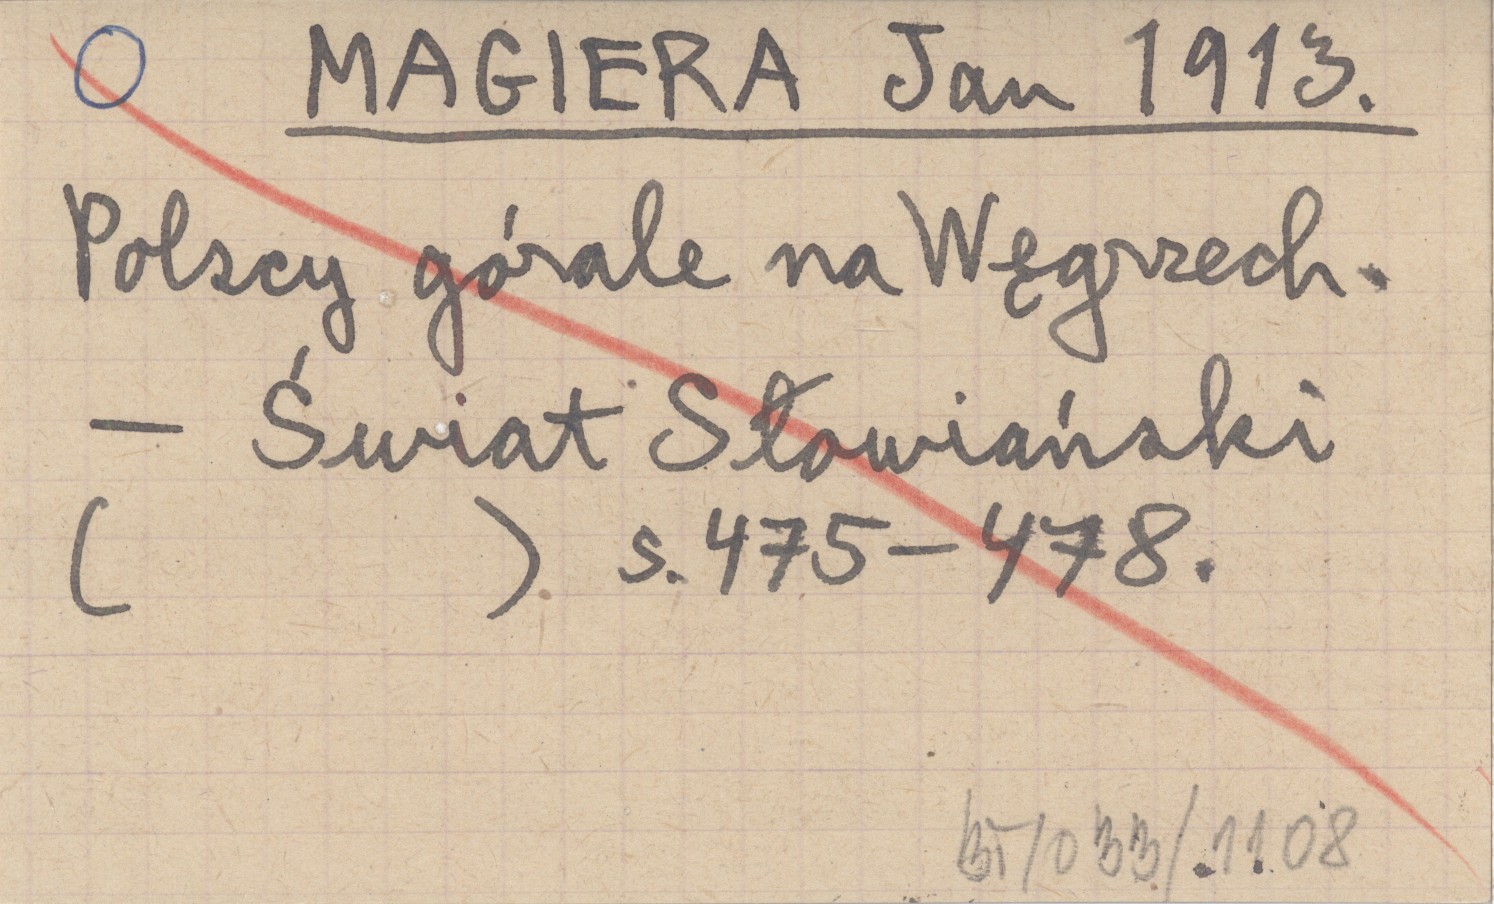 O MAGIERA Jan 1913.
Polscy górale na Węgrzech.
— Świat Słowiański
( ) s. 475–478.
BT/033/.1108